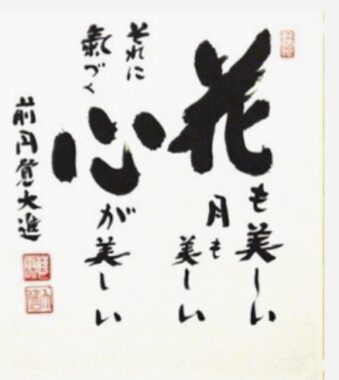 花も美しい
月も美しい
それに
氣づく
心が美しい
前円覚大進